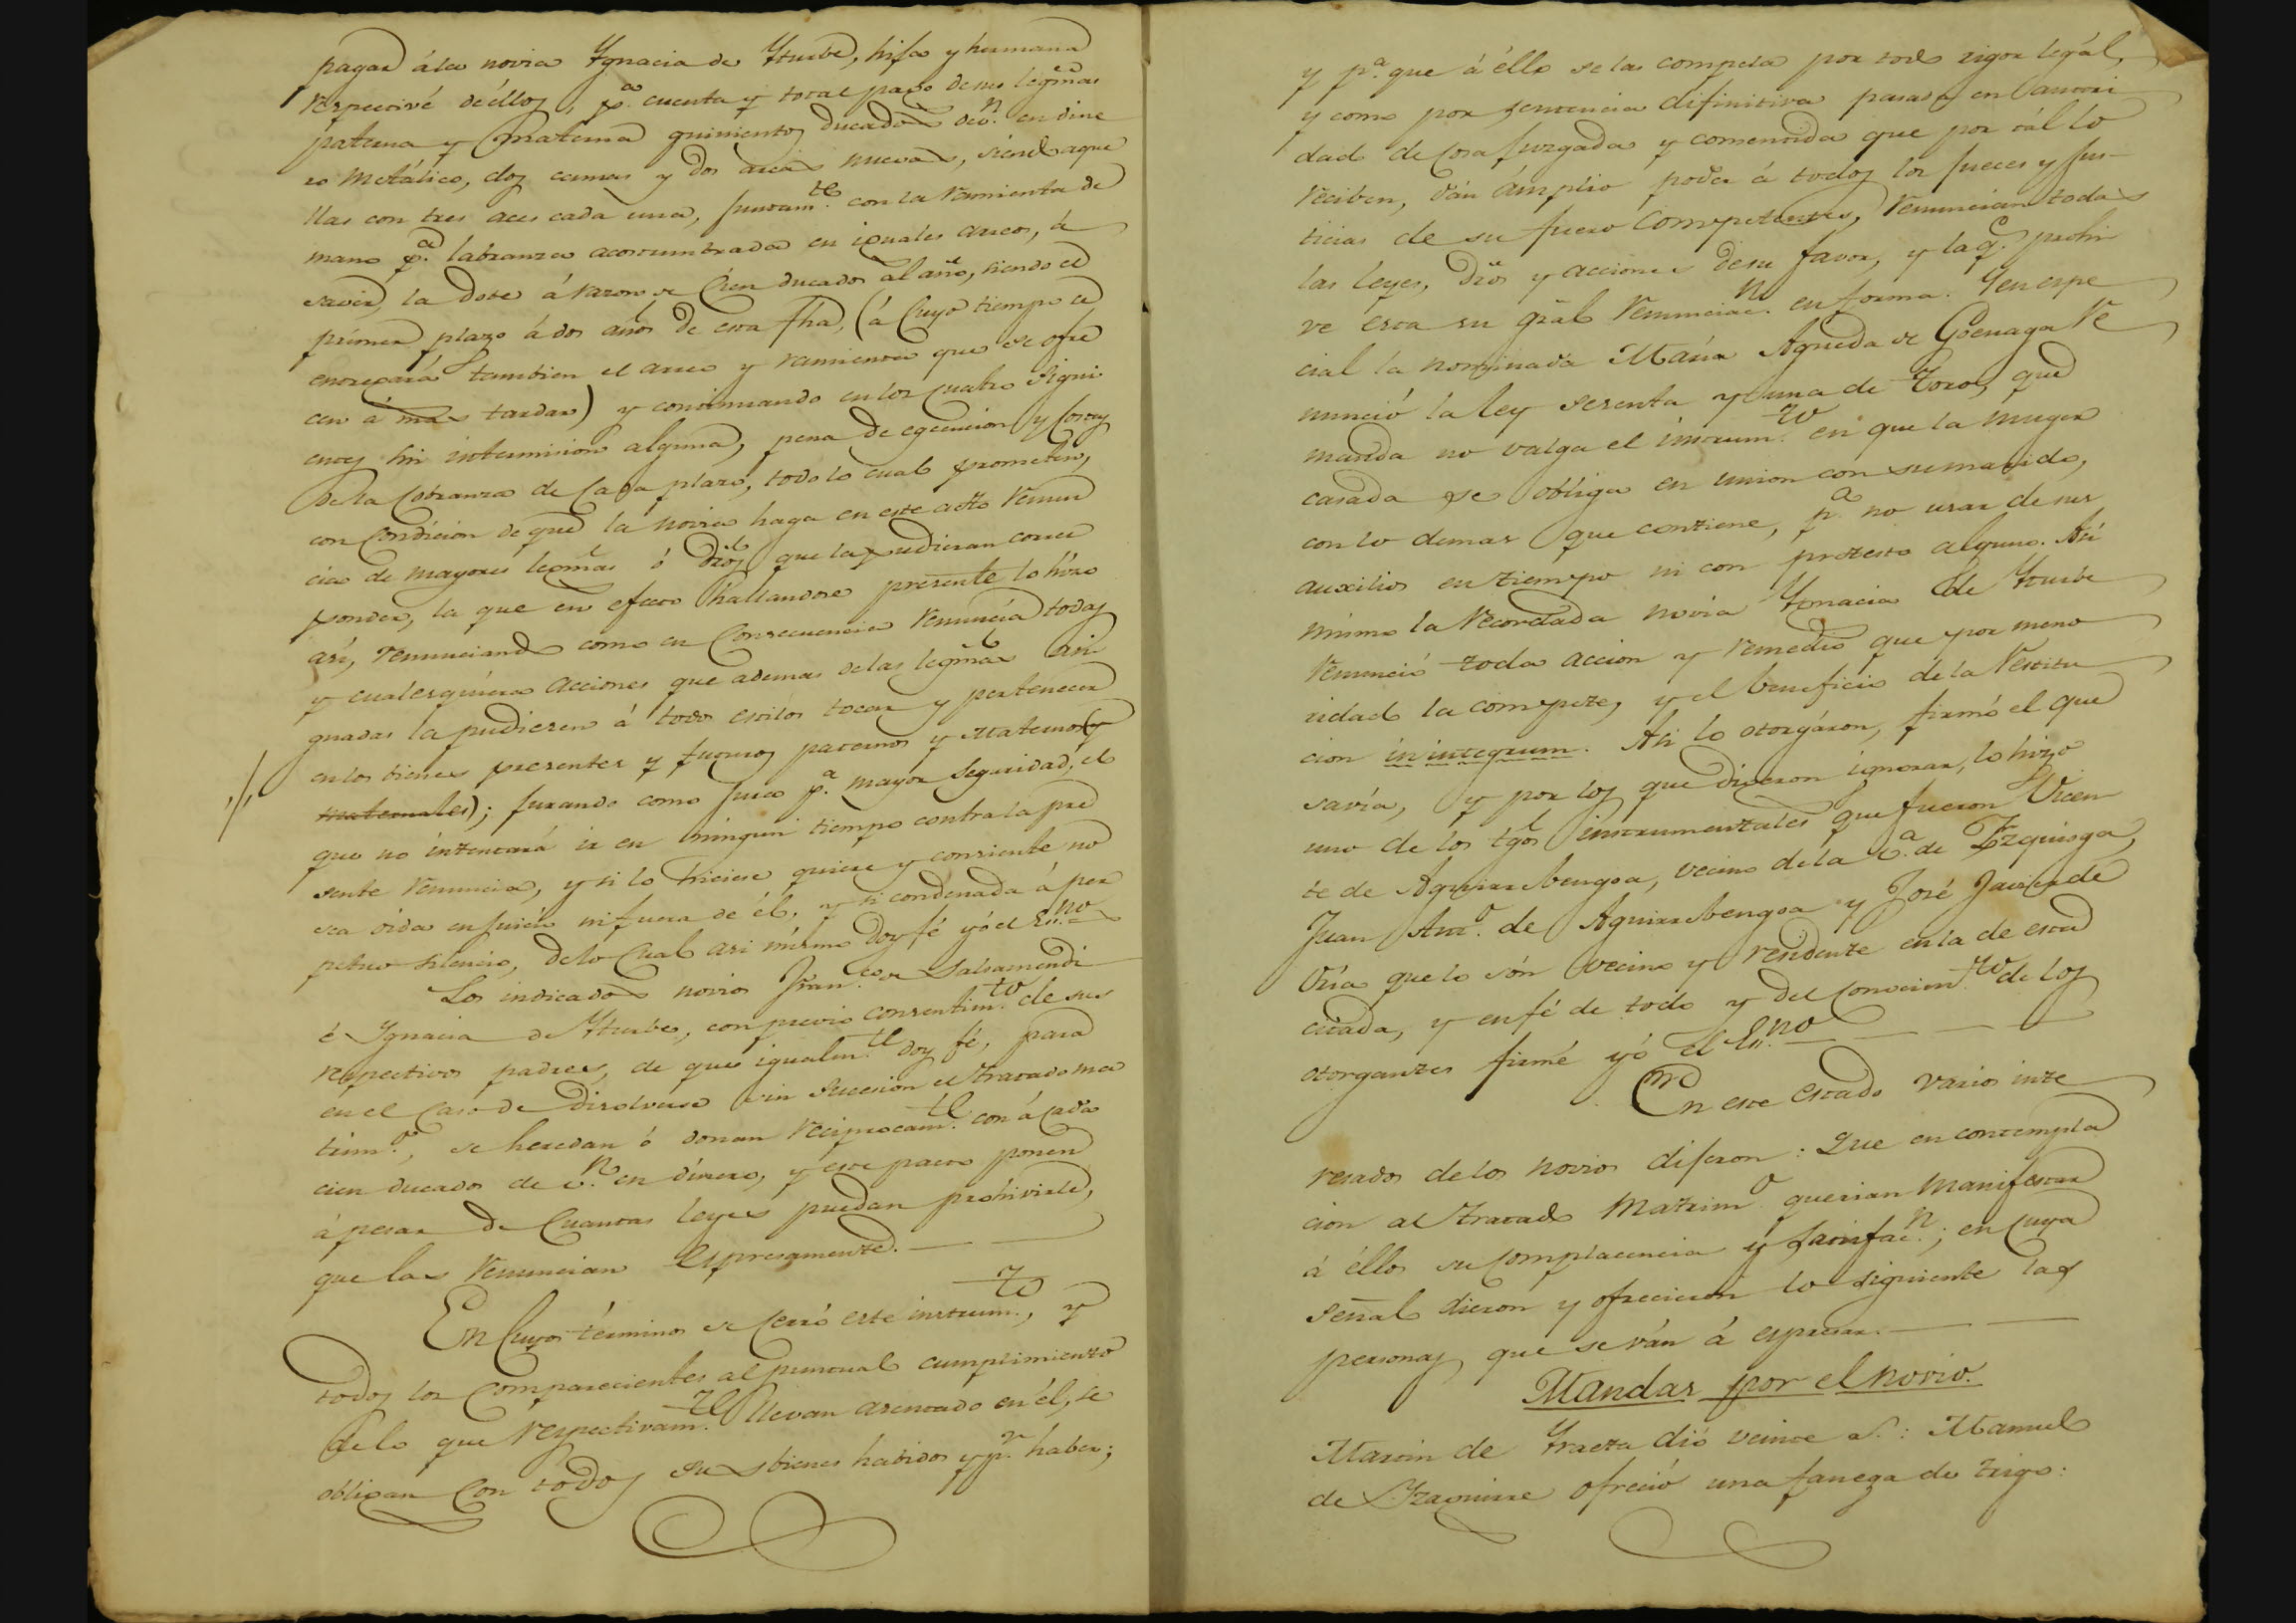 pagar á la novia Ygnacia de Yturbe, hija y hermana
respectivé de éllos, p.ª cuenta y total pago de sus legmas
paterna y materna quinientos ducados de v.n en dine
ro metálico, dos camas y dos arcas nuevas, siendo aque
llas con tres aces cada una, juntam.te con la ramienta de
mano p.ª labranza acostumbrada en iguales arreos, á
saver, la dote á razon de Cien ducados al año, siendo el
primer plazo á dos años de esta fha, (á cuyo tiempo se
entregará tambien el arreo y ramienta que se ofre
cen á mas tardar) y continuando en los cuatro sigui
entes sin intermision alguna, pena de egecucion y costas
de la Cobranza de Cada plazo, todo lo cual prometen,
con Condicion de que la novia haga en este acto renun
cia de mayores legmas ó dros que la pudieran corres
ponder, la que en efecto hallandose presente lo hizo
así, renunciando como en Consecuencia renuncia todas
y cualesquiera acciones que ademas de las legmas asi
gnadas la pudieren á todos estilos tocar y pertenecer
en los bienes presentes y futuros paternos y maternos (y
maternales); jurando como juró p.ª mayor seguridad, el
que no intentará ir en ningun tiempo contra la pre
sente renuncia, y si lo hiciese quiere y consiente no
sea oida en juicio ni fuera de él, y si condenada á per
petuo silencio, de lo Cual asi mismo doy fé yó el Es.no
Los indicados novios Fran.co de Salsamendi
é Ygnacia de Yturbe, con previo consentim.to de sus
respectivos padres, de que igualm.te doy fé, para
en el Caso de Disolverse sin sucesion el tratado ma
trim.o, se heredan ó donan reciprocam.te con á cada
cien ducados de v.n en dinero, y este pacto ponen
á pesar de Cuantas leyes puedan prohivirle,
que las renuncian espresamente.
En Cuyos términos se cerró este instrum.to, y
todos los Comparecientes al puntual cumplimiento
de lo que respectivam.te llevan asentado en él, se
obligan Con todos sus bienes habidos y p.r haber;
y p.ª que á éllo se las compela por todo rigor legál,
y como por sentencia difinitiva pasada en autori
dad de Cosa juzgada y comentida que por tál lo
reciben, dán ámplio poder á todos los jueces y jus-
ticias de su fuero Competentes, renuncian todas
las leyes, dros y acciones de su favor, y la q.e prohi
ve esta su gral renunciac.n en forma. Y en espe
cial la nominada María Agueda de Goenaga re
nunció la ley sesenta y una de Toro, que
manda no valga el instrum.to en que la muger
casada se obliga en union con su marido,
con lo demas que contiene, p.ª no usar de sus
auxilios en tiempo ni con protesto alguno. Asi
mismo la recordada novia Ygnacia de Yturbe
renunció toda accion y remedio que por meno
ridad la compete, y el beneficio de la restitu
cion in integrum. Asi lo otorgáron, firmó el que
savía, y por los que dixeron ignorar, lo hizo
uno de los tgos instrumentales que fueron Vicen
te de Aguirrebengoa, vecino de la v.ª de Izquioga,
Juan Ant.o de Aguirrebengoa y José Javier de
Oria que lo són vecino y residente en la de esta
citada, y en fé de todo y del Conocim.to de los
otorgantes firmé yó el Es.no
En este estado varios inte
resados de los novios dijeron: Que en contempla
cion al tratado Matrim.o querian manifestar
á éllos su Complacencia y satisfac.n; en cuya
señal dieron y ofrecieron lo siguiente las
personas que se ván á espresar.
Mandas por el novio.
Martin de Yraeta dió veinte r.s: Manuel
de Yzaguirre ofreció una fanega de trigo: